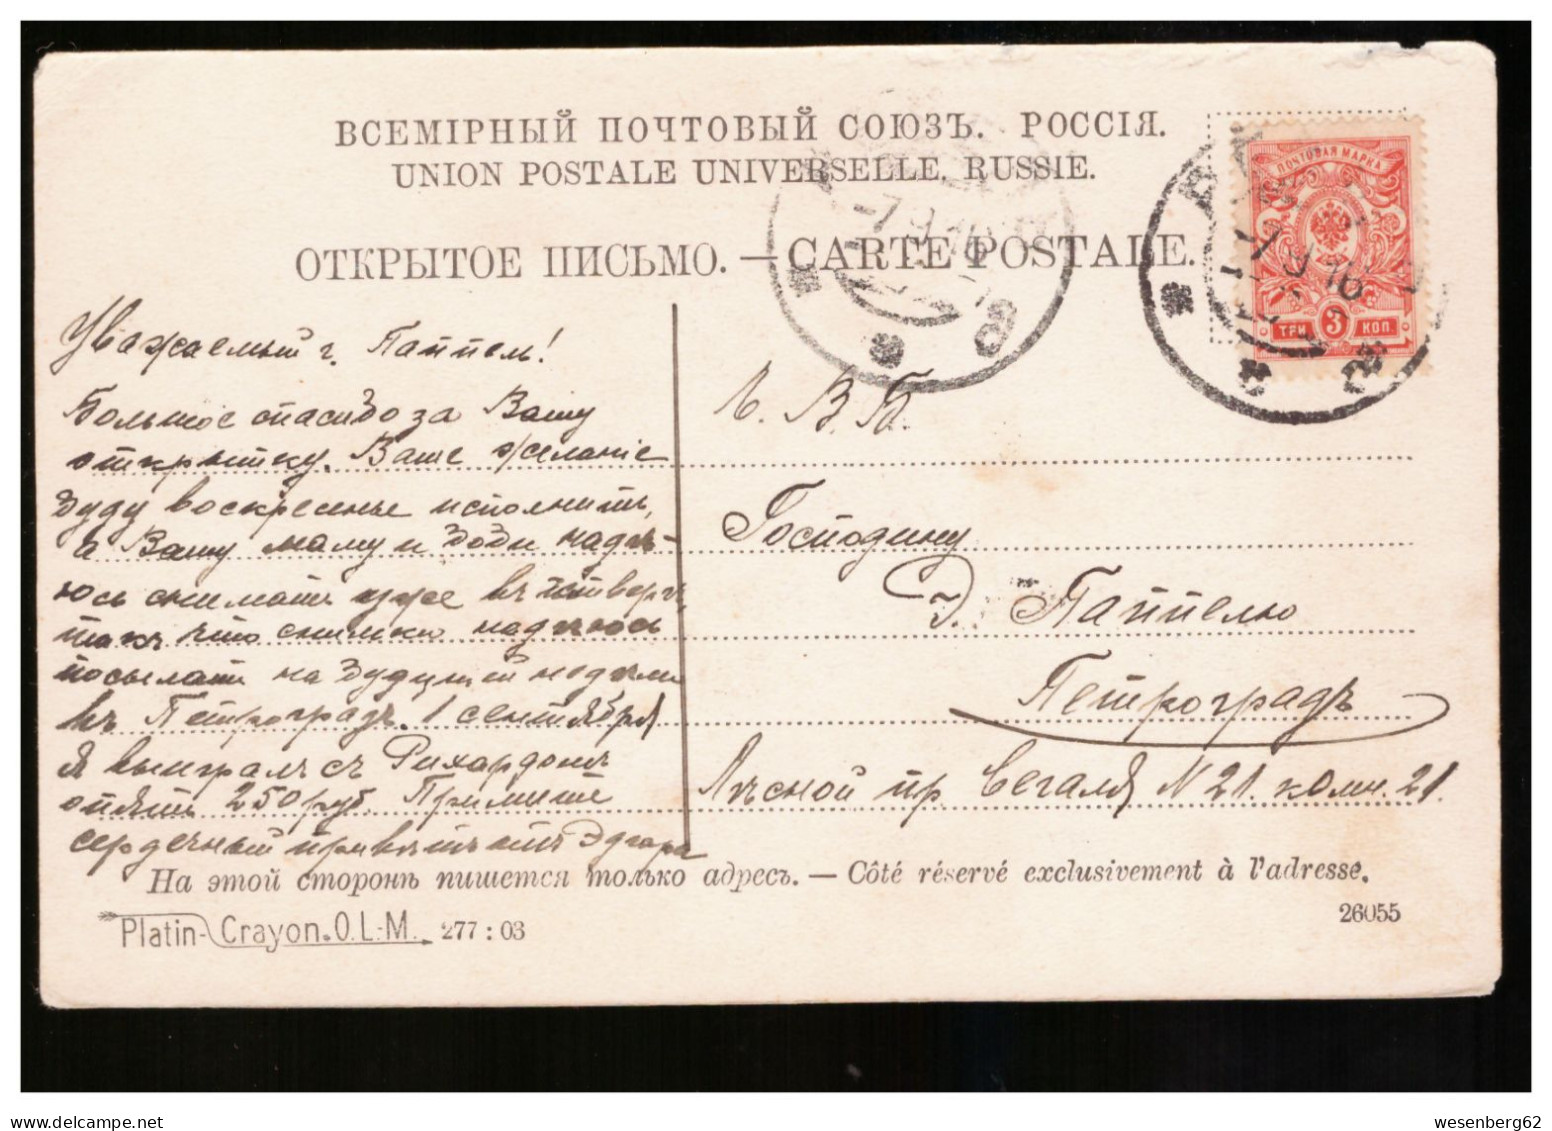 ВСЕМІРНЫЙ ПОЧТОВЫЙ СОЮЗЪ. РОССІЯ.
UNION POSTALE UNIVERSELLE. RUSSIE.
ОТКРЫТОЕ ПИСЬМО. — CARTE POSTALE.
ПОЧТОВАЯ МАРКА
ТРИ 3 КОП.
-7 9 16
-7 9 16
Уважаемый г. Паппель!
Большое спасибо за Вашу
открытку. Ваше желаніе
буду воскресенье исполнить,
а Вашу маму и надѣ-
юсь снимать уже въ четвергъ,
такъ что снимки надѣюсь
посылать на будущій недѣли
въ Петроградъ. 1 сентября
я выигралъ съ
опять 250 руб. Примите
сердечный привѣтъ отъ Эдгара
Е. В. Б.
Господину
Э. Паппелю
Петроградъ
Лѣсной пр. N 21. комн. 21.
На этой сторонѣ пишется только адресъ. — Côté réservé exclusivement à l'adresse.
Platin-Crayon.O.L.M. 277 : 03
26055
wesenberg62